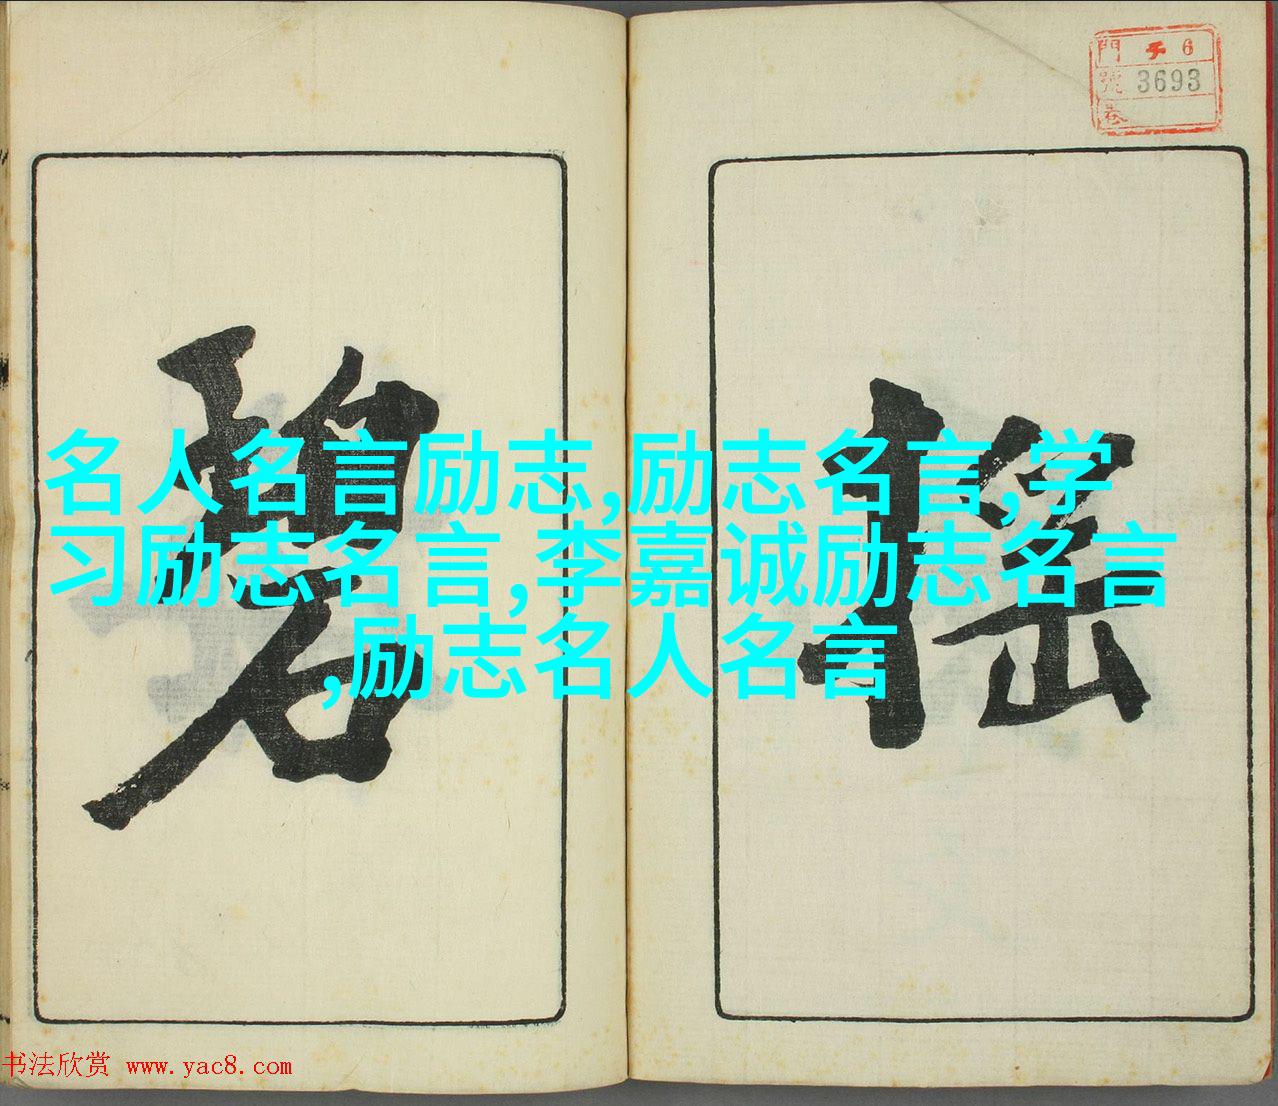 門 子 6
號 3693
卷
搖
碧
名人名言励志,励志名言,学
习励志名言,李嘉诚励志名言
,励志名人名言
书法欣赏 www.yac8.com